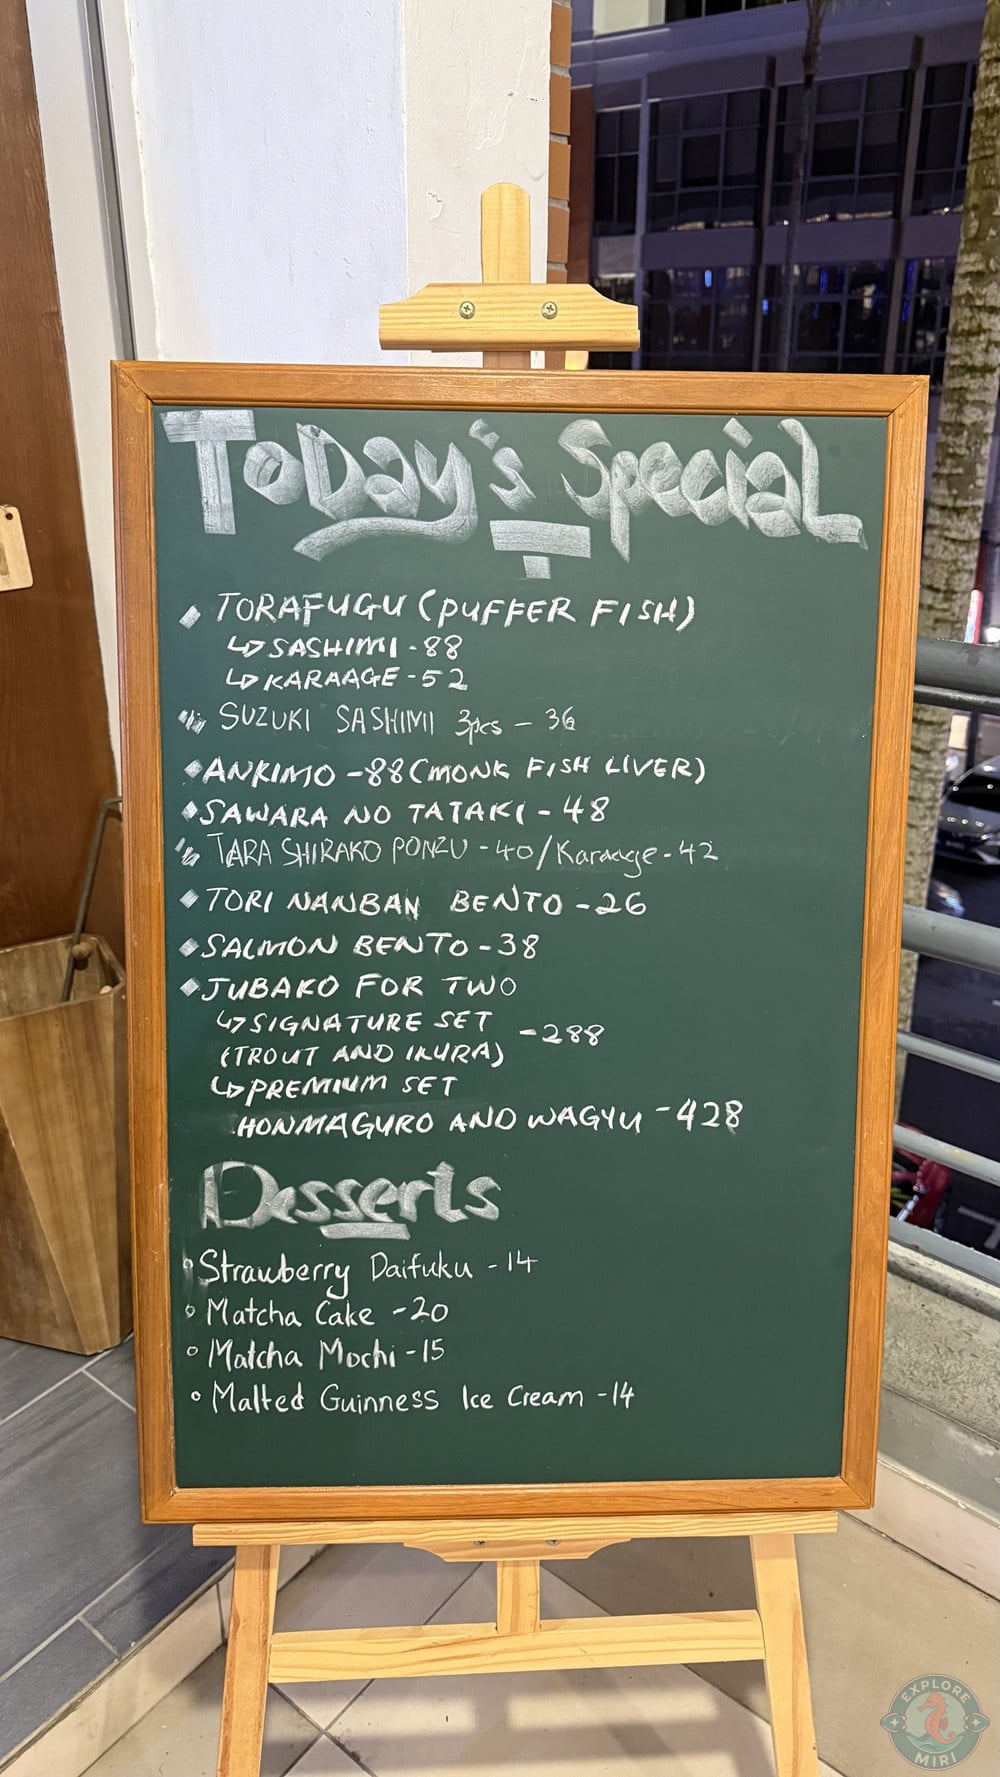 ToDay's Special
TORAFUGU (PUFFER FISH)
↳ SASHIMI - 88
↳ KARAAGE - 52
SUZUKI SASHIMI 3pcs - 36
ANKIMO - 88 (MONK FISH LIVER)
SAWARA NO TATAKI - 48
TARA SHIRAKO PONZU - 40 / Karaage - 42
TORI NANBAN BENTO - 26
SALMON BENTO - 38
JUBAKO FOR TWO
↳ SIGNATURE SET
(TROUT AND IKURA) - 288
↳ PREMIUM SET
HONMAGURO AND WAGYU - 428
Desserts
Strawberry Daifuku - 14
Matcha Cake - 20
Matcha Mochi - 15
Malted Guinness Ice Cream - 14
EXPLORE
MIRI